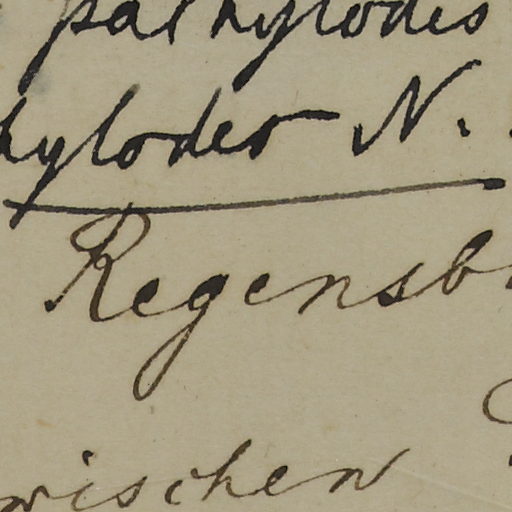 pachylodes
hylodes N.
Regensb
wischen